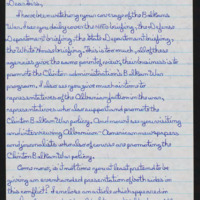 Dear Sirs,
I have been watching your coverage of the Balkans
War, hear you, daily cover the NATO briefing, the Defense
Department briefing, the State Department briefing,
the White House briefing. This is too much, all of these
agencies give the same point of view, their business is
to promote the Clinton administration's Balkan War
program. I also see you give much time to
representatives of the Albanian faction in this war,
representatives who also support and promote the
Clinton Balkan War policy. And now I see you visiting
and interviewing Albanian-American newspapers
and journalists who also of course are promoting the
Clinton Balkan War policy.
Come now, isn't it time you at least pretend to be
giving an even handed presentation of both sides in
this conflict? I enclose an article which appeared in